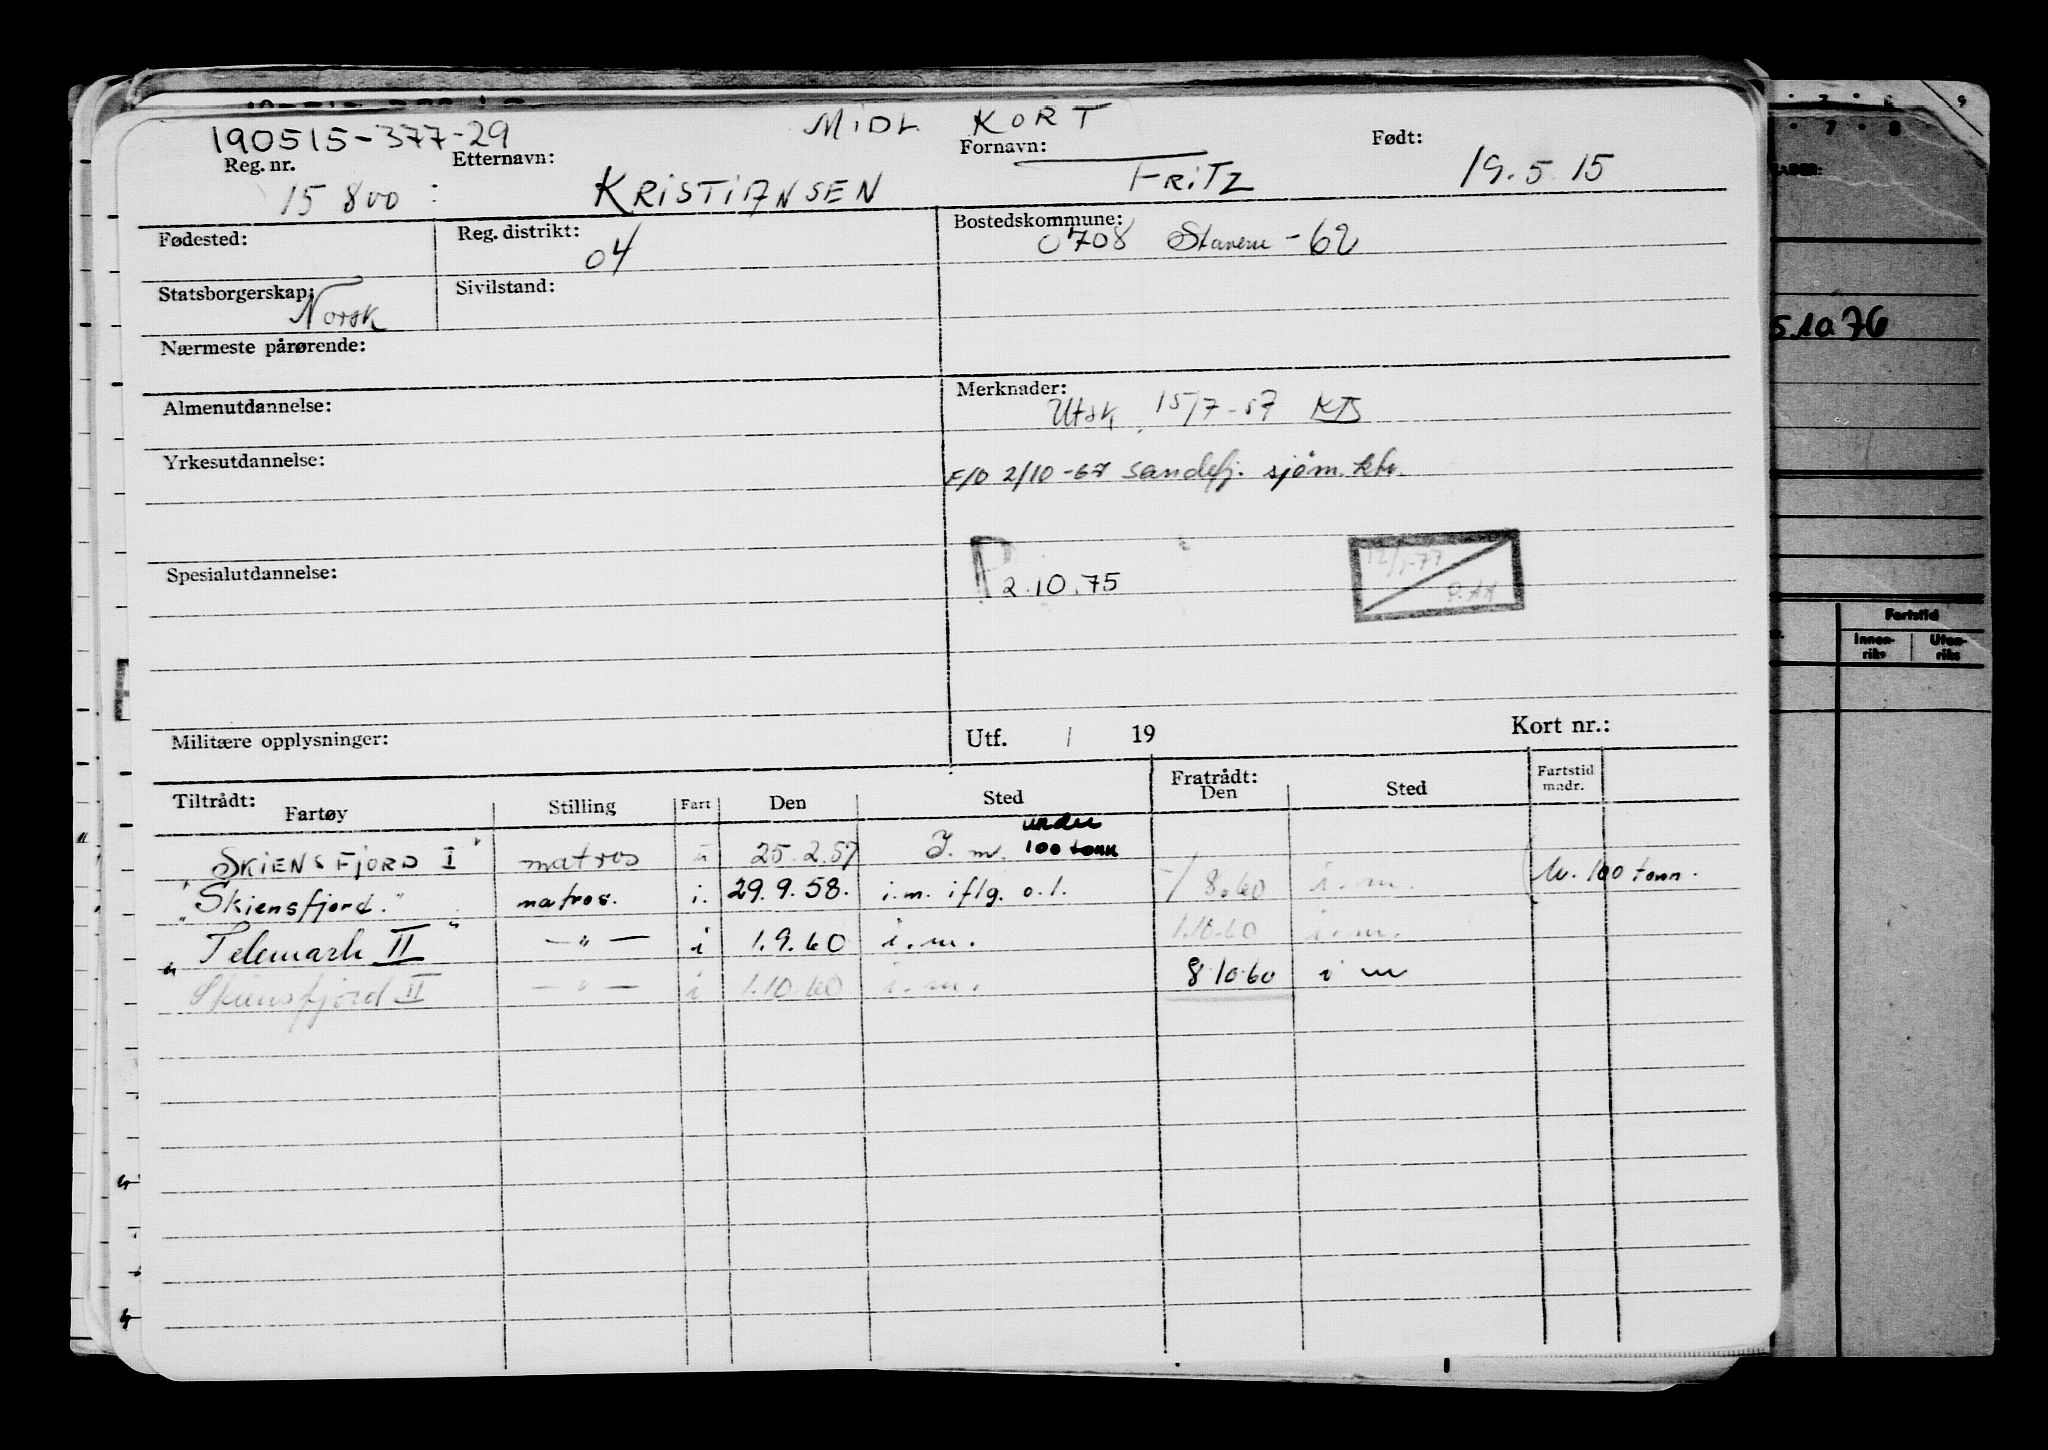 MIDL KORT
190515-377-29
Reg. nr. Etternavn: Fornavn: Født:
15 800 : KRISTIANSEN FRITZ 19.5.15
Fødested: Reg. distrikt: Bostedskommune:
04 0708 Stavern -62
Statsborgerskap: Sivilstand:
Norsk
5.10 76
Nærmeste pårørende:
Almenutdannelse: Merknader:
Utsk 15/7-57
Yrkesutdannelse:
F/O 2/10-67 Sandefj. sjøm. ktr.
Spesialutdannelse:
P 2.10.75
Fartstid
Innen-riks Uten-riks
Militære opplysninger: Utf. / 19 Kort nr.:
Tiltrådt: Fratrådt: Fartstid
Fartøy Stilling Fart Den Sted Den Sted mndr.
under
"SKIENSFJORD I" matros 25.2.57 I. m. 100 tonn
"Skiensfjord." matros. i. 29.9.58. i.m. iflg. o.l. -/8.60 i.m. 100 tonn.
"Telemark II" —"— i 1.9.60 i.m. 1.10.60 i.m.
Skiensfjord II —"— i 1.10.60 i.m. 8.10.60 i m